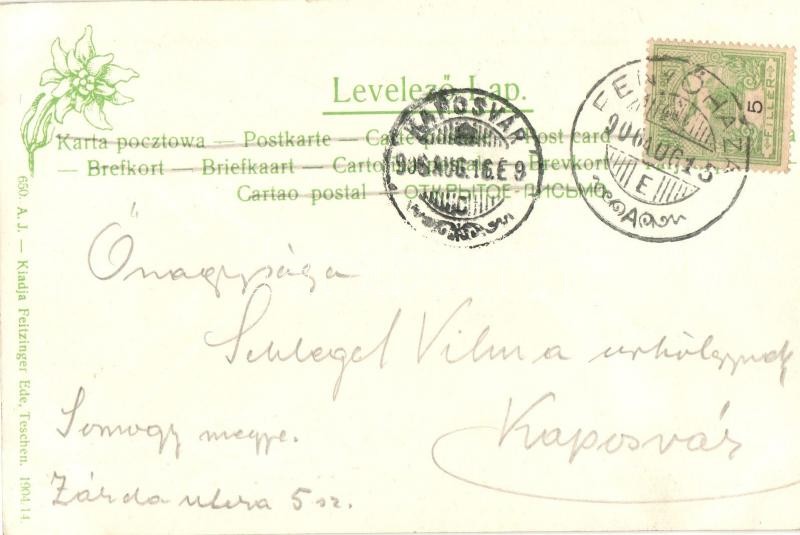 Levelező-Lap.
Karta pocztowa — Postkarte — Carte postale — Post card
— Brefkort — Briefkaart — Cartolina postale — Brevkort —
Cartao postal — ОТКРЫТОЕ ПИСЬМО
KAPOSVÁR
906 AUG. 16. E 9
C
FENYŐHÁZA
906 AUG 15
E
A
5
FILLER
Őnagysága
Schlegel Vilma urhölgynek
Kaposvár
Somogy megye.
Zárda utcza 5 sz.
650. A. J. — Kiadja Feitzinger Ede, Teschen. 1904.14.